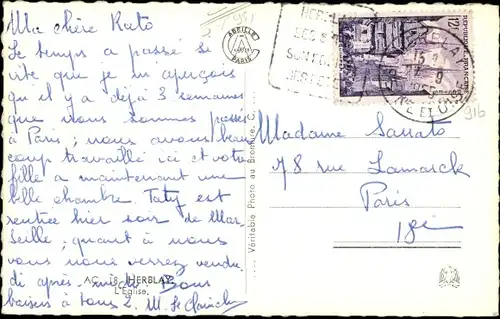 Ma chère Kato
Le temps a passé si
vite que je m'aperçois
qu'il y a déjà 3 semaines
que nous sommes passés
à Paris ; nous avons beau
coup travaillé ici et votre
fille a maintenant une
belle chambre. Taty est
rentrée hier soir de Mar
seille ; quant à nous
vous nous verrez vendre
di après-midi. Bons
baisers à tous 2. M.
AC 18 HERBLAY
L'Eglise.
Véritable Photo au Bromure
951
PARIS
HERBLAY
SES
SON
12F
HERBLAY
SEINE ET OISE
916
Madame Sassato
78 rue Lamarck
Paris
18e